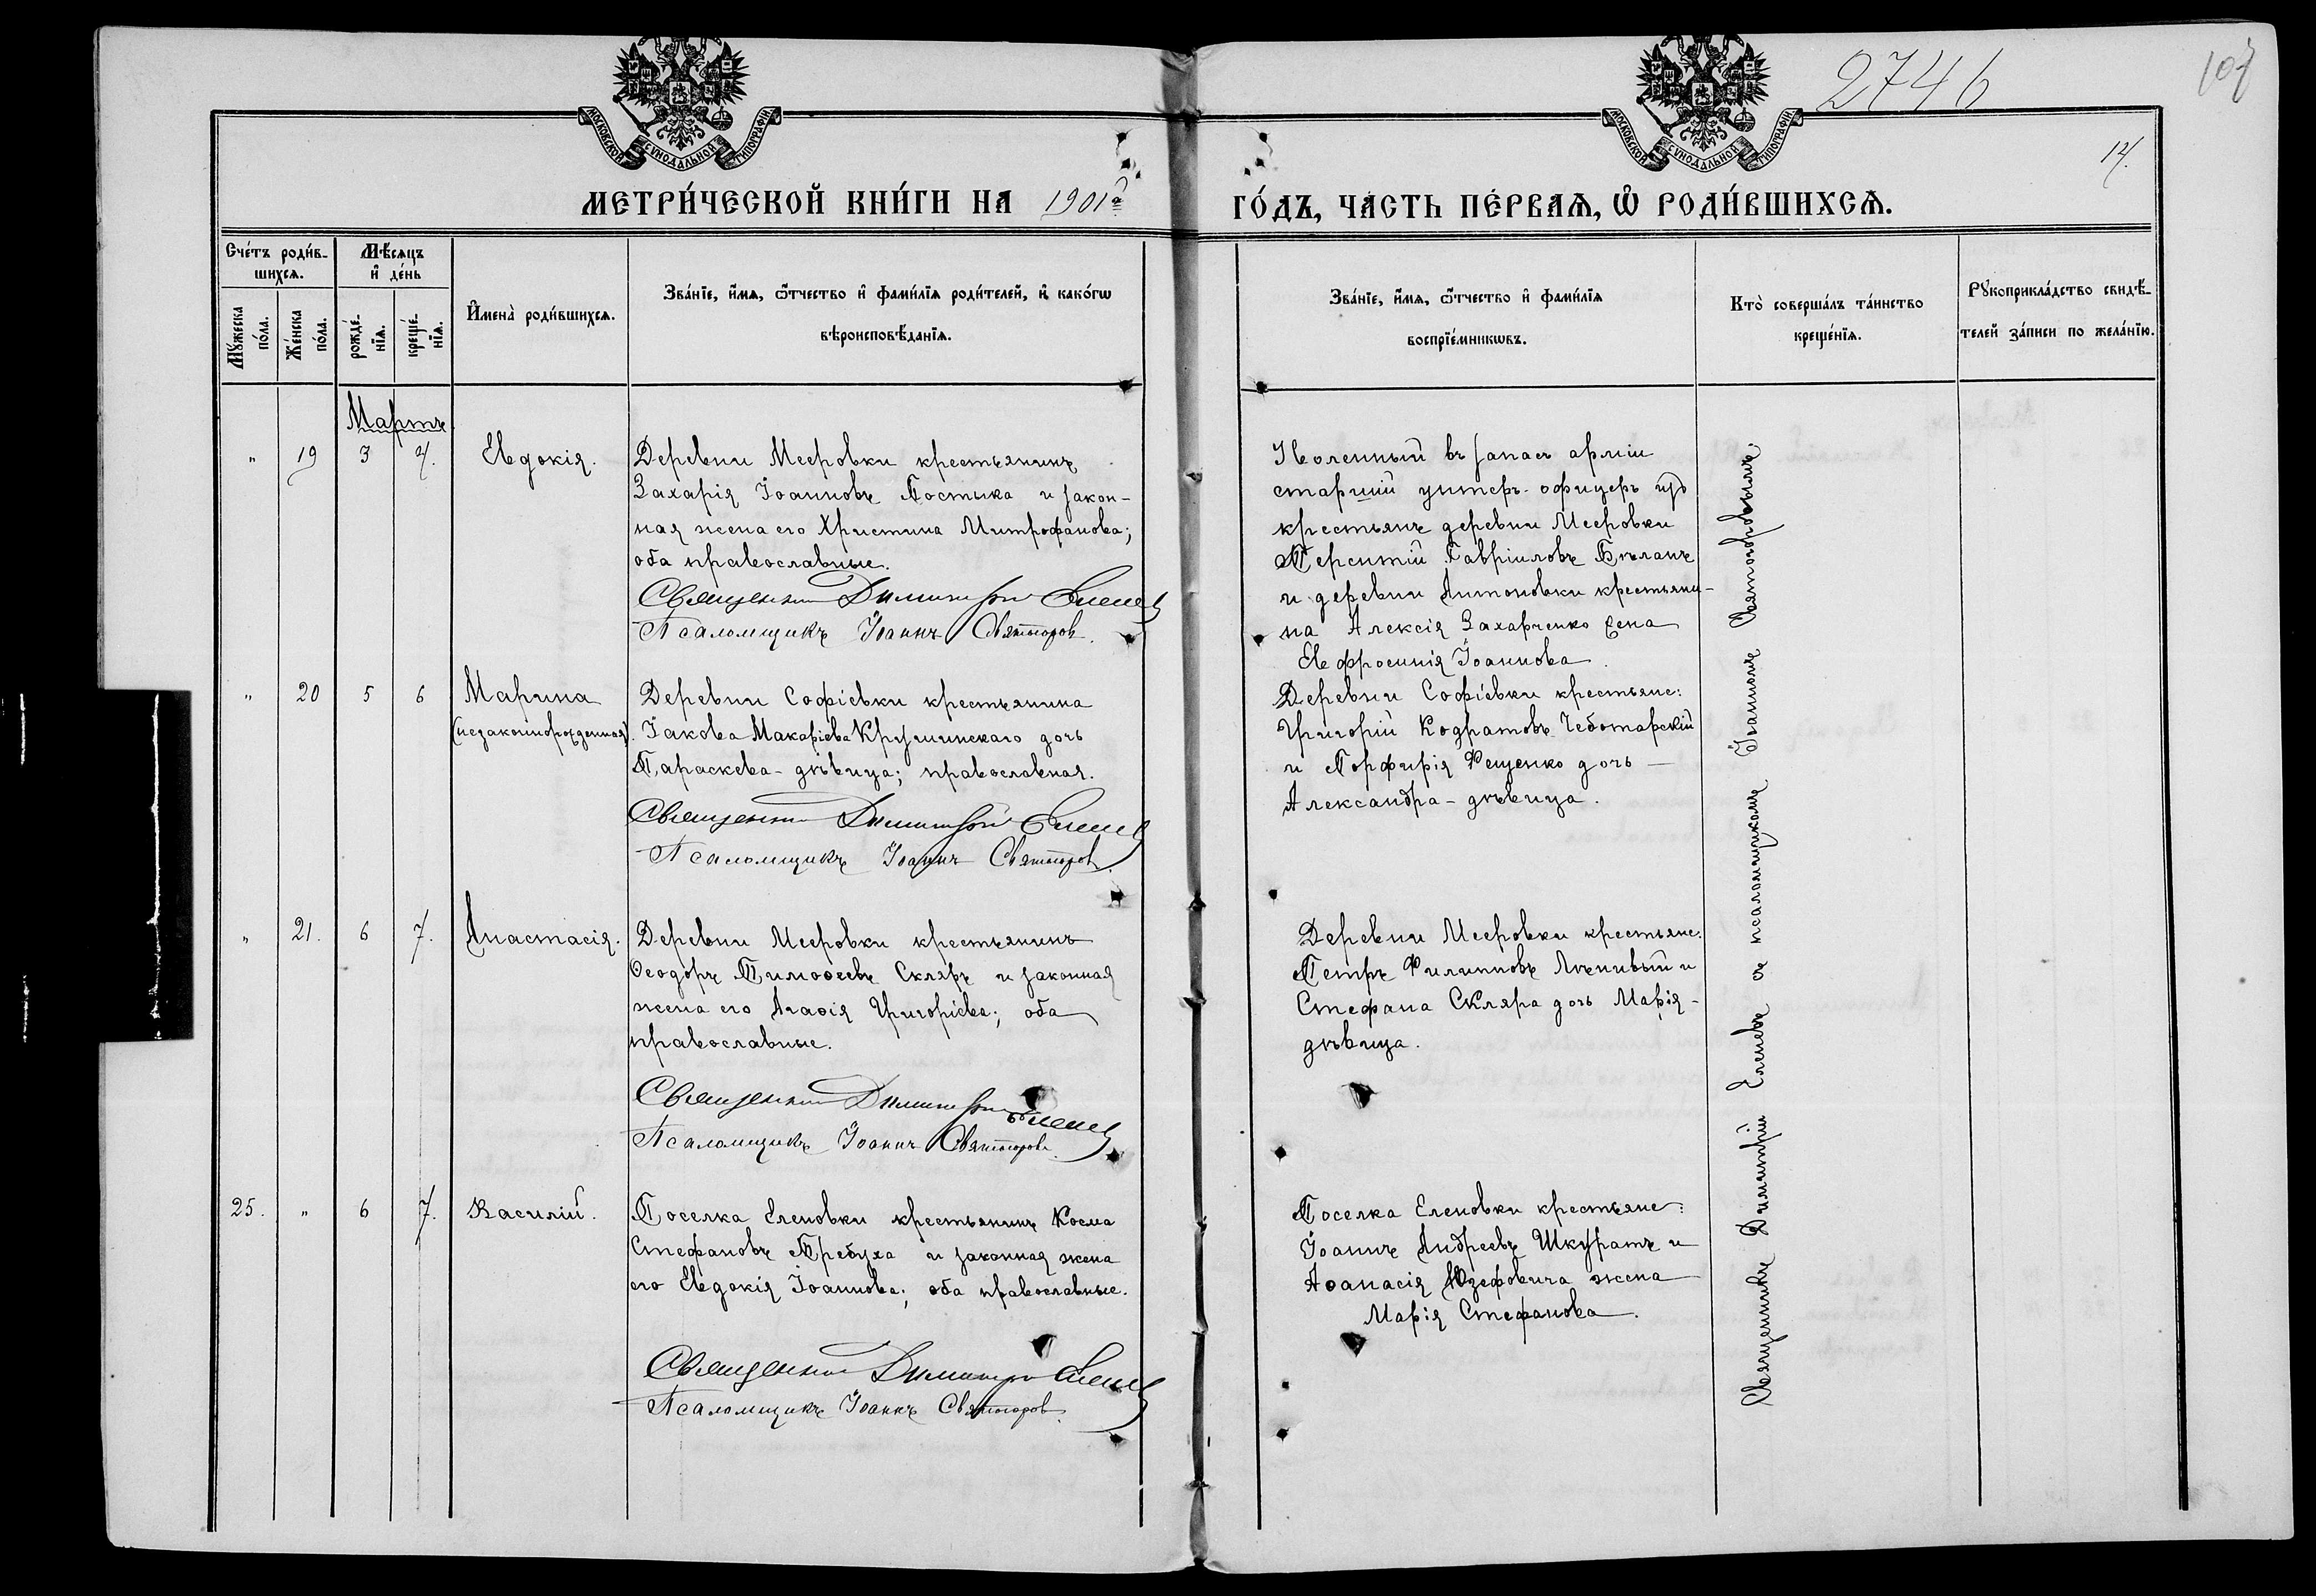 2746
107
14.
МОСКОВСКОЙ СѴНОДАЛЬНОЙ ТИПОГРАФІИ
МОСКОВСКОЙ СѴНОДАЛЬНОЙ ТИПОГРАФІИ
МЕТРИ́ЧЕСКОЙ КНИ́ГИ НА 1901й ГО́ДЪ, ЧА́СТЬ ПЕ́РВАѦ, Ѽ РОДИ́ВШИХСѦ.
Сче́тъ роди́в-
шихсѧ.
Мѣ́сяцъ
и҆ де́нь
Мꙋ́жеска по́ла.
Же́нска по́ла.
рожде́-
нїѧ.
креще́-
нїѧ.
И҆мена̀ роди́вшихсѧ.
Зва́нїе, и҆́мѧ, ѻ҆́тчество и҆ фами́лїѧ роди́телей, и҆ како́гѡ
вѣроисповѣ́данїѧ.
Зва́нїе, и҆́мѧ, ѻ҆́тчество и҆ фами́лїѧ
воспрїе́мникѡвъ.
Кто̀ соверша́лъ та́инство
креще́нїѧ.
Рꙋкоприкла́дство свидѣ́-
телей за́писи по жела́нїю.
Мартъ
" 19 3 4. Евдокія.
Деревни Мееровки крестьянинъ
Захарія Іоанновъ Костыка и закон-
ная жена его Христина Митрофанова;
оба православные.
Священникъ Димитрій Еленевъ
Псаломщикъ Іоаннъ Святогоровъ.
Уволенный въ запасъ арміи
старшій унтеръ-офицеръ изъ
крестьянъ деревни Мееровки
Терентій Гавріиловъ Бѣланъ
и деревни Антоновки крестьяни-
на Алексія Захарченко жена
Евфросинія Іоаннова.
" 20 5 6 Марина
(незаконнорожденная).
Деревни Софіевки крестьянина
Іакова Макаріева Крушинскаго дочь
Параскева-дѣвица; православная.
Священникъ Димитрій Еленевъ
Псаломщикъ Іоаннъ Святогоровъ.
Деревни Софіевки крестьяне:
Григорій Кодратовъ Чеботарскій
и Порфирія Фещенко дочь
Александра-дѣвица.
" 21. 6 7. Анастасія.
Деревни Мееровки крестьянинъ
Ѳеодоръ Тимоѳеевъ Скляръ и законная
жена его Агаѳія Григоріева; оба
православные.
Священникъ Димитрій Еленевъ
Псаломщикъ Іоаннъ Святогоровъ.
Деревни Мееровки крестьяне:
Петръ Филипповъ Лѣнивый и
Стефана Скляра дочь Марія-
дѣвица.
25. " 6 7. Василій.
Поселка Еленовки крестьянинъ Косма
Стефановъ Требуха и законная жена
его Евдокія Іоаннова; оба православные.
Священникъ Димитрій Еленевъ
Псаломщикъ Іоаннъ Святогоровъ.
Поселка Еленовки крестьяне:
Іоаннъ Андреевъ Шкуратъ и
Аѳанасія Юзефовича жена
Марія Стефанова.
Священникъ Димитрій Еленевъ съ псаломщикомъ Іоанномъ Святогоровымъ.